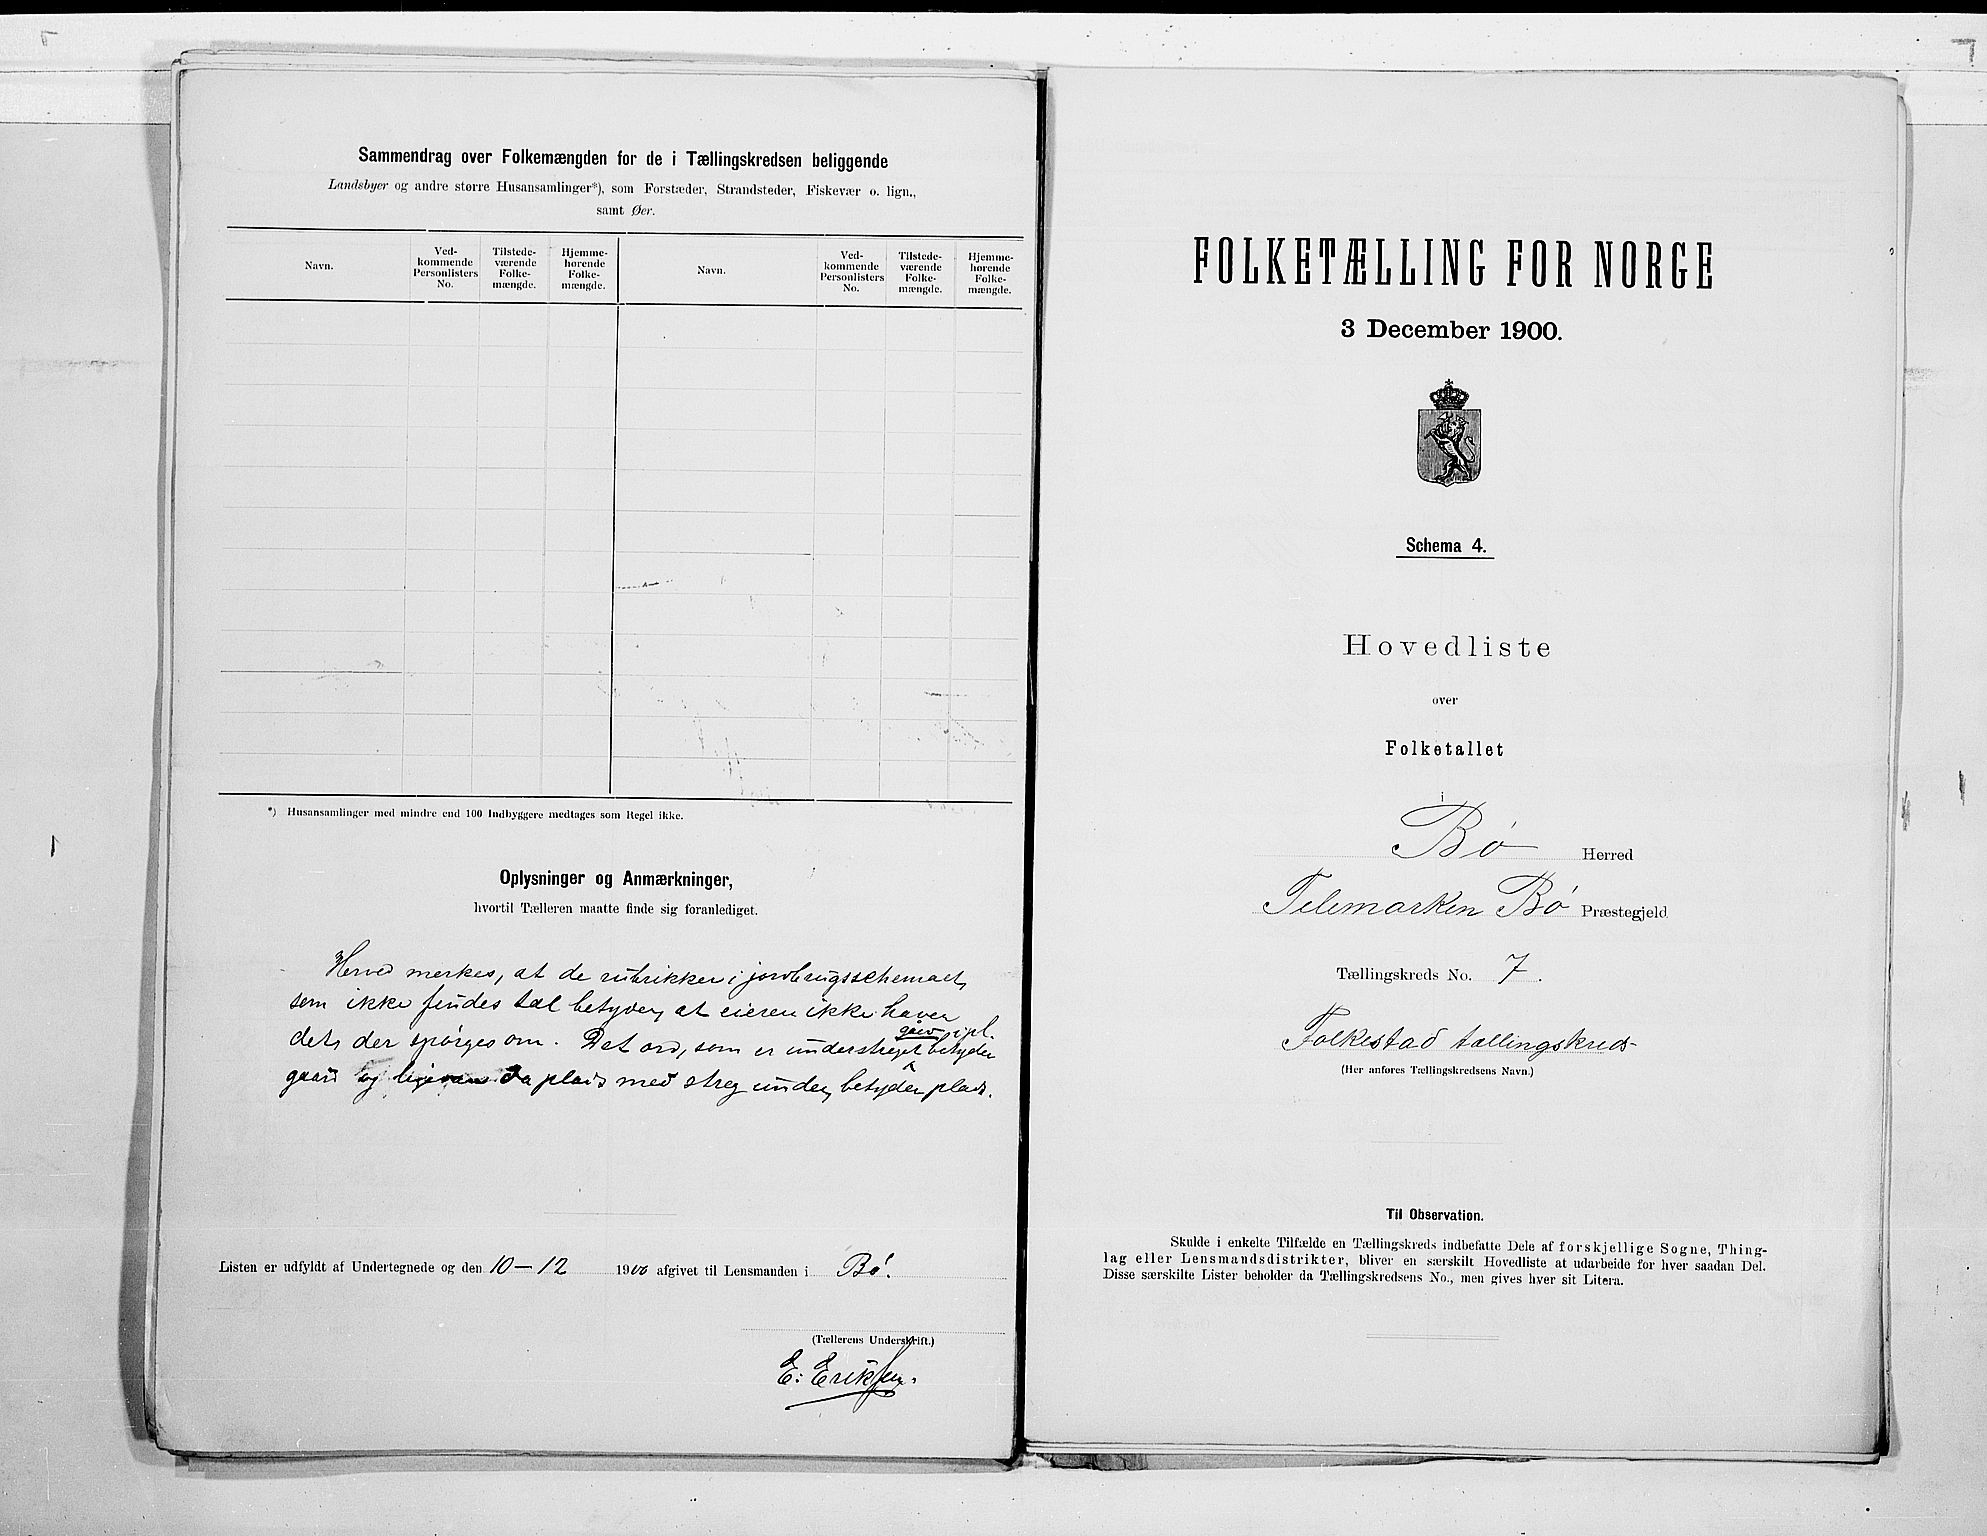 Sammendrag over Folkemængden for de i Tællingskredsen beliggende
Landsbyer og andre større Husansamlinger*), som Forstæder, Strandsteder, Fiskevær o. lign.,
samt Øer.
Navn.
Ved-
kommende
Personlisters
No.
Tilstede-
værende
Folke-
mængde.
Hjemme-
hørende
Folke-
mængde.
Navn.
Ved-
kommende
Personlisters
No.
Tilstede-
værende
Folke-
mængde.
Hjemme-
hørende
Folke-
mængde.
*) Husansamlinger med mindre end 100 Indbyggere medtages som Regel ikke.
Oplysninger og Anmærkninger,
hvortil Tælleren maatte finde sig foranlediget.
Herved merkes, at de rubrikker i jordbrugsschemaet,
som ikke findes tal betyder, at eieren ikke haver
det, der spørges om. Det ord, som er understreget betyder
gård i pl.
gaard og plads med streg under, betyder plads.
Listen er udfyldt af Undertegnede og den 10-12 1900 afgivet til Lensmanden i Bø.
(Tællerens Underskrift.)
E: Eriksen.
FOLKETÆLLING FOR NORGE
3 December 1900.
Schema 4.
Hovedliste
over
Folketallet
i
Bø Herred
Telemarken Bø Præstegjeld
Tællingskreds No. 7.
Folkestad tællingskreds
(Her anføres Tællingskredsens Navn.)
Til Observation.
Skulde i enkelte Tilfælde en Tællingskreds indbefatte Dele af forskjellige Sogne, Thing-
lag eller Lensmandsdistrikter, bliver en særskilt Hovedliste at udarbeide for hver saadan Del.
Disse særskilte Lister beholder da Tællingskredsens No., men gives hver sit Litera.